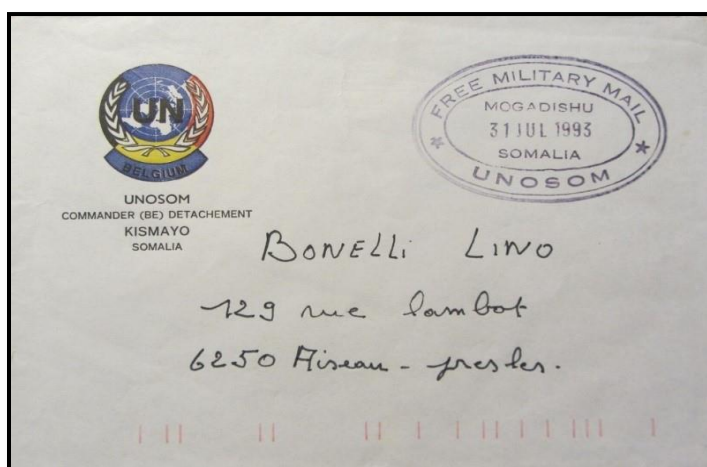 UN
BELGIUM
UNOSOM
COMMANDER (BE) DETACHEMENT
KISMAYO
SOMALIA
FREE MILITARY MAIL
MOGADISHU
31 JUL 1993
SOMALIA
UNOSOM
BONELLi LINO
129 rue lambot
6250 Aiseau - presles.